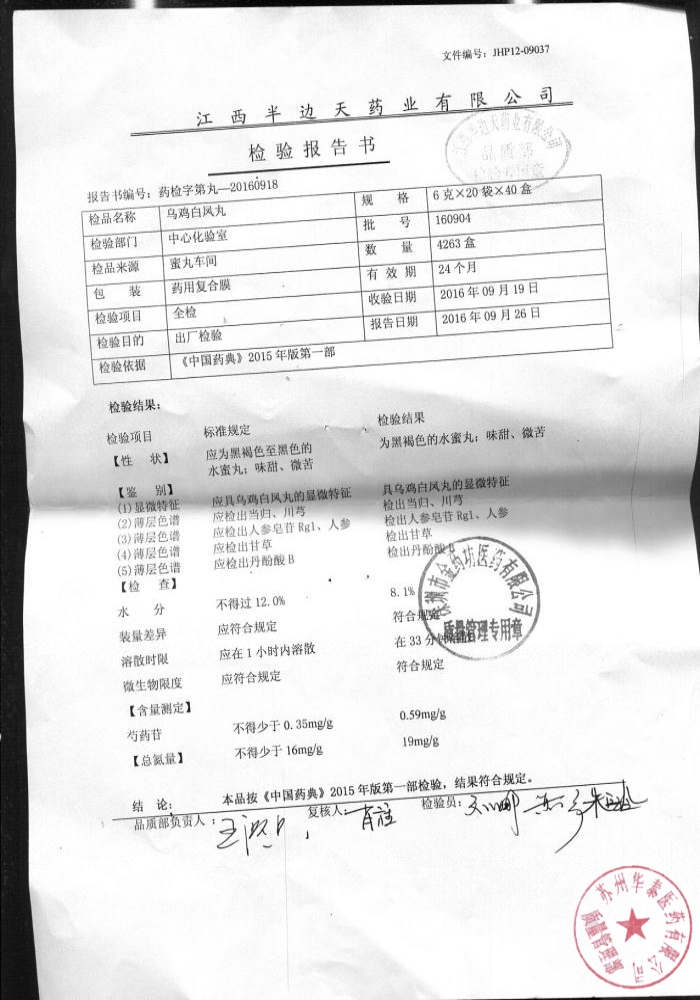 文件编号：JHP12-09037
江西半边天药业有限公司
检验报告书
江西半边天药业有限公司
品质部
检验专用章
报告书编号：药检字第丸—20160918
检品名称 乌鸡白凤丸 规 格 6克×20袋×40盒
检验部门 中心化验室 批 号 160904
检品来源 蜜丸车间 数 量 4263盒
包 装 药用复合膜 有 效 期 24个月
检验项目 全检 收验日期 2016年09月19日
检验目的 出厂检验 报告日期 2016年09月26日
检验依据 《中国药典》2015年版第一部
检验结果：
检验项目 标准规定 检验结果
【性 状】 应为黑褐色至黑色的 为黑褐色的水蜜丸；味甜、微苦
水蜜丸；味甜、微苦
【鉴 别】
(1)显微特征 应具乌鸡白凤丸的显微特征 具乌鸡白凤丸的显微特征
(2)薄层色谱 应检出当归、川芎 检出当归、川芎
(3)薄层色谱 应检出人参皂苷Rg1、人参 检出人参皂苷Rg1、人参
(4)薄层色谱 应检出甘草 检出甘草
(5)薄层色谱 应检出丹酚酸B 检出丹酚酸B
【检 查】
水 分 不得过12.0% 8.1%
装量差异 应符合规定 符合规定
溶散时限 应在1小时内溶散 在33分钟
微生物限度 应符合规定 符合规定
【含量测定】
芍药苷 不得少于0.35mg/g 0.59mg/g
【总氮量】 不得少于16mg/g 19mg/g
深圳市金药坊医药有限公司
质量管理专用章
结 论： 本品按《中国药典》2015年版第一部检验，结果符合规定。
品质部负责人： 复核人： 检验员：
苏州华泰医药有限公司
质量管理部